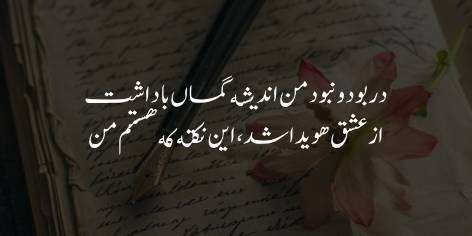 در بود و نبود من اندیشه گماں ہا داشت
از عشق ھویدا شد، این نکتہ کہ ھستم من